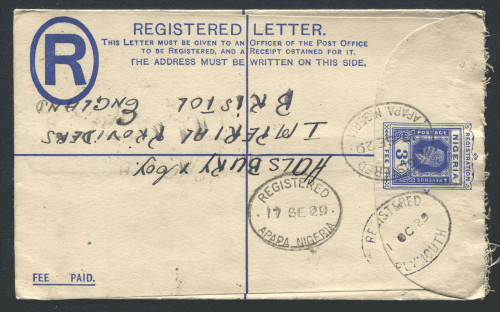 R
REGISTERED LETTER.
THIS LETTER MUST BE GIVEN TO AN OFFICER OF THE POST OFFICE
TO BE REGISTERED, AND A RECEIPT OBTAINED FOR IT.
THE ADDRESS MUST BE WRITTEN ON THIS SIDE.
HOLSBURY & Coy
IMPERIAL PROVIDERS
BRISTOL
ENGLAND
REGISTERED
17 SE 29
APAPA NIGERIA
APAPA. NIGERIA
SE 29
POSTAGE
NIGERIA
3d
& REVENUE
REGISTRATION
FEE
REGISTERED
1 OC 29
PLYMOUTH
FEE PAID.